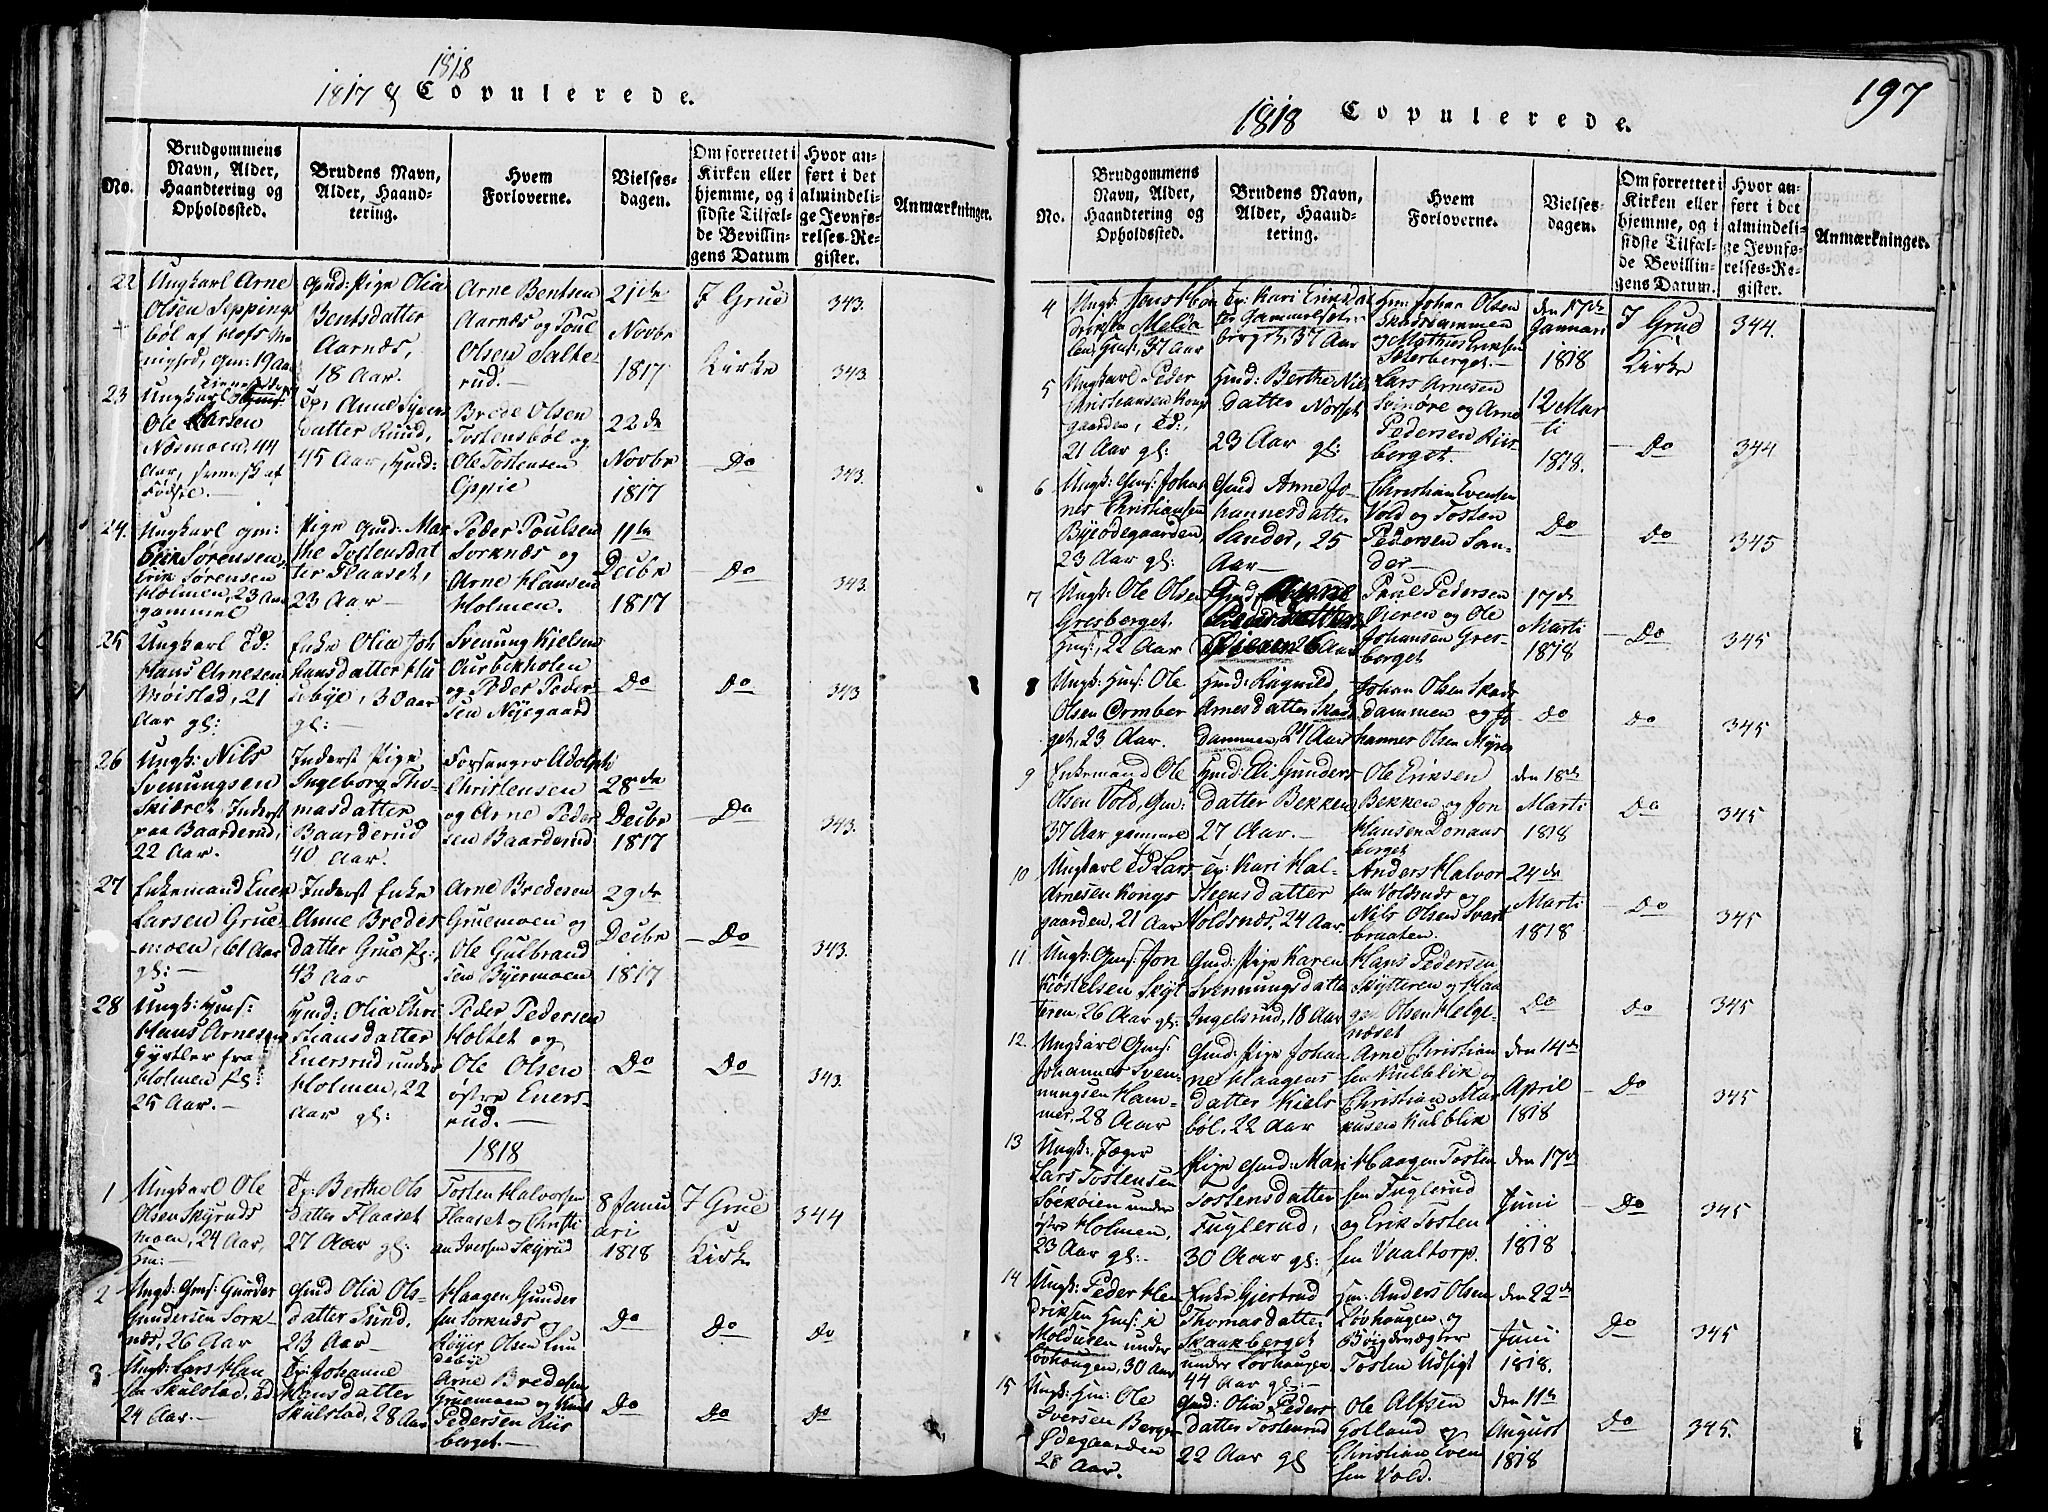 1818
1817 & Copulerede.
No.
Brudgommens
Navn, Alder,
Haandtering og
Opholdssted.
Brudens Navn,
Alder, Haand-
tering.
Hvem
Forloverne.
Vielses-
dagen.
Om forrettet i
Kirken eller
hjemme, og i
sidste Tilfæl-
de Bevillin-
gens Datum
Hvor an-
ført i det
almindeli-
ge Jevnfø-
relses-Re-
gister.
Anmærkninger.
22
Ungkarl Arne
Olsen
19 Aar
Gmd: Pige Olia
Bentsdatter
Aarnæs,
18 Aar.
Arne Bentsen
Aarnæs og Poul
Olsen Salte-
rud.
21de
Novbr
1817
I Grue
Kirke
343.
343.
23
Ungkarl
Ole Larsen
Nosmoen, 44
Aar, svensk af
Fødsel.
Anne
datter Ruud,
45 Aar,
Brede Olsen
Tostensbøl og
Ole Tostensen
Oppie
22de
Novbr
1817
Do
343.
24.
Ungkarl Gm:
Erik Sørensen,
Erik Sørensen
Holmen, 23 Aar
gammel
Pige Gmd: Mar
the Tostensdat
ter Flaaset,
23 Aar
Peder Poulsen
Sorknæs og
Arne Hansen
Holmen.
11te
Decbr
1817
Do
343.
25
Ungkarl Ed:
Hans Arnesen
Moistad, 21
Aar gl:
Enke Olia Joh
hansdatter Hu
sebye, 30 Aar
gl:
Svenung Kielsen
Aurbekholen
og Peder Peder-
sen Nyegaard
Do
Do
343
26
Ungk: Nils
Svenungsen
Skiæret Inderst
paa Baarderud
22 Aar.
Inderst Pige
Ingeborg Tho-
masdatter
Baarderud
40 Aar.
Forsanger Adolph
Christensen
og Arne Peder
sen Baarderud
28de
Decbr
1817
Do
343.
27
Enkemand Ener
Larsen Grue-
moen, 61 Aar
gl:
Inderst Enke
Anne Bredes
datter Grue
43 Aar
Arne Bredesen
Gruemoen og
Ole Gulbrand
sen Byermoen
29de
Decbr
1817
Do
343.
28
Ungk: Hms:
Hans Arnesen
Gyrtler fra
Holmen
25 Aar.
Hmd: Olia Chri
stiansdatter
Enersrud under
Holmen, 22
Aar gl:
Peder Pedersen
Holtet og
Ole Olsen
østre Eners-
rud.
Do
Do
343.
1818
1
Ungkarl Ole
Olsen Skyruds
moen, 24 Aar,
Hm:
Ep: Berthe Ols
datter Flaaset
27 Aar gl:
Tosten Halvorsen
Flaaset og Christi
an Iversen Skyrud
8 Janu
ari
1818
I Grue
Kirke
344
2
Ungk: Gms: Gunder
Gundersen Sork
næs, 26 Aar
Gmd Olia Ols-
datter Sund,
23 Aar
Haagen Gunder
sen Sorknæs og
Røyer Olsen Lun
debye
Do
Do
Do
3
Ungk: Lars Han
sen Skulstad, Ed
24 Aar.
Ep: Johanne
Hansdatter
Skulstad, 28 Aar
Arne Bredesen
Gruemoen og Knut
Pedersen Riis
berget.
Do
Do
Do
197
1818 Copulerede.
No.
Brudgommens
Navn, Alder,
Haandtering og
Opholdssted.
Brudens Navn,
Alder, Haand-
tering.
Hvem
Forloverne.
Vielses-
dagen.
Om forrettet i
Kirken eller
hjemme, og i
sidste Tilfæl-
de Bevillin-
gens Datum.
Hvor an-
ført i det
almindeli-
ge Jevnfø-
relses-Re-
gister.
Anmærkninger.
4
37 Aar
Ep: Kari Eriksdat
37 Aar
Hm: Johan Olsen
Skasdammen
og Mathis Eriksen
Seterberget.
den 17de
Januari
1818
I Grue
Kirke
344.
5
Ungkarl Peder
Christiansen Kongs
gaarden, Ed:,
21 Aar gl:
Hmd: Berthe Nils
datter Norset
23 Aar gl:
Lars Arnesen
Svinøre og Arne
Pedersen Riis-
berget.
12 Mar
ti
1818.
Do
344
6
Ungk: Gms: Johan
nes Christiansen
Byeødegaarden,
23 Aar gl:
Gmd Anne Jo-
hannesdatter
Sander, 25
Aar
Christian Evensen
Vold og Tosten
Pedersen San-
der
Do
Do
345
7
Ungk: Ole Olsen
Gresberget,
Hms:, 22 Aar
Gmd: Anne
Pedersdatter
26 Aar
Paul Pedersen
Øieren og Ole
Johansen Gres-
berget
17de
Marti
1818
Do
345
8
Ungk: Hms: Ole
Olsen Ormber
get, 23 Aar.
Hmd: Ragnild
Arnesdatter Skas
dammen, 24 Aar
Johan Olsen Skas
dammen og Jo
hannes Olsen Myre
Do
Do
345
9
Enkemand Ole
Olsen Vold, Gm:
37 Aar gammel
Hmd: Eli Gunders
datter Bekken
27 Aar.
Ole Eriksen
Bekken og Jon
Hansen Donaas
berget
den 18de
Marti
1818
Do
345
10
Ungkarl Ed Lars
Arnesen Kongs
gaarden, 21 Aar
Ep: Kari Hal-
steensdatter
Voldsnæs, 24 Aar.
Anders Halvor
sen Voldsnæs og
Nils Olsen Svart
braaten.
24de
Marti
1818
Do
345
11
Ungk: Gms: Jon
Kostelsen Skyt
teren, 26 Aar gl:
Gmd: Pige Karen
Svennungsdatter
Ingelsrud, 18 Aar
Hans Pedersen
Skytteren og Haa
gen Olsen Helge-
næset
Do
Do
345
12
Ungkarl Gms:
Johannes Sven-
nungsen Ham-
mer, 28 Aar
Gmd: Pige Johan
ne Haagens
datter Kiels
bøl, 22 Aar
Arne Christian
sen Kulblik og
Christian Mar
kusen Kulblik
den 14de
April
1818
Do
345
13
Ungk: Jæger
Lars Tostensen
Søekøien under
østre Holmen,
23 Aar gl:
Pige Gmd: Mari
Tostensdatter
Fuglerud,
30 Aar gl:
Haagen Tosten
sen Fuglerud
og Erik Tosten
sen Vaaltorp.
den 17de
Juni
1818
Do
345
14
Ungk: Peder Hen
driksen Hms: i
Molduren under
Løvhougen, 30 Aar
Enke Giertrud
Thomasdatter
Skaskberget
under Løvhougen
44 Aar gl:
Hm: Anders Olsen
Løvhougen og
Bøigdevægter
Tosten Udsigt
den 22de
Juni
1818.
Do
345
15
Ungk: Hm: Ole
Iversen Berger
Ødegaarden
28 Aar.
Gmd: Olia Peders
datter Tostenrud
22 Aar gl
Ole Alfsen
Golland og
Christian Even
sen Vold.
den 11te
August
1818
Do
345.